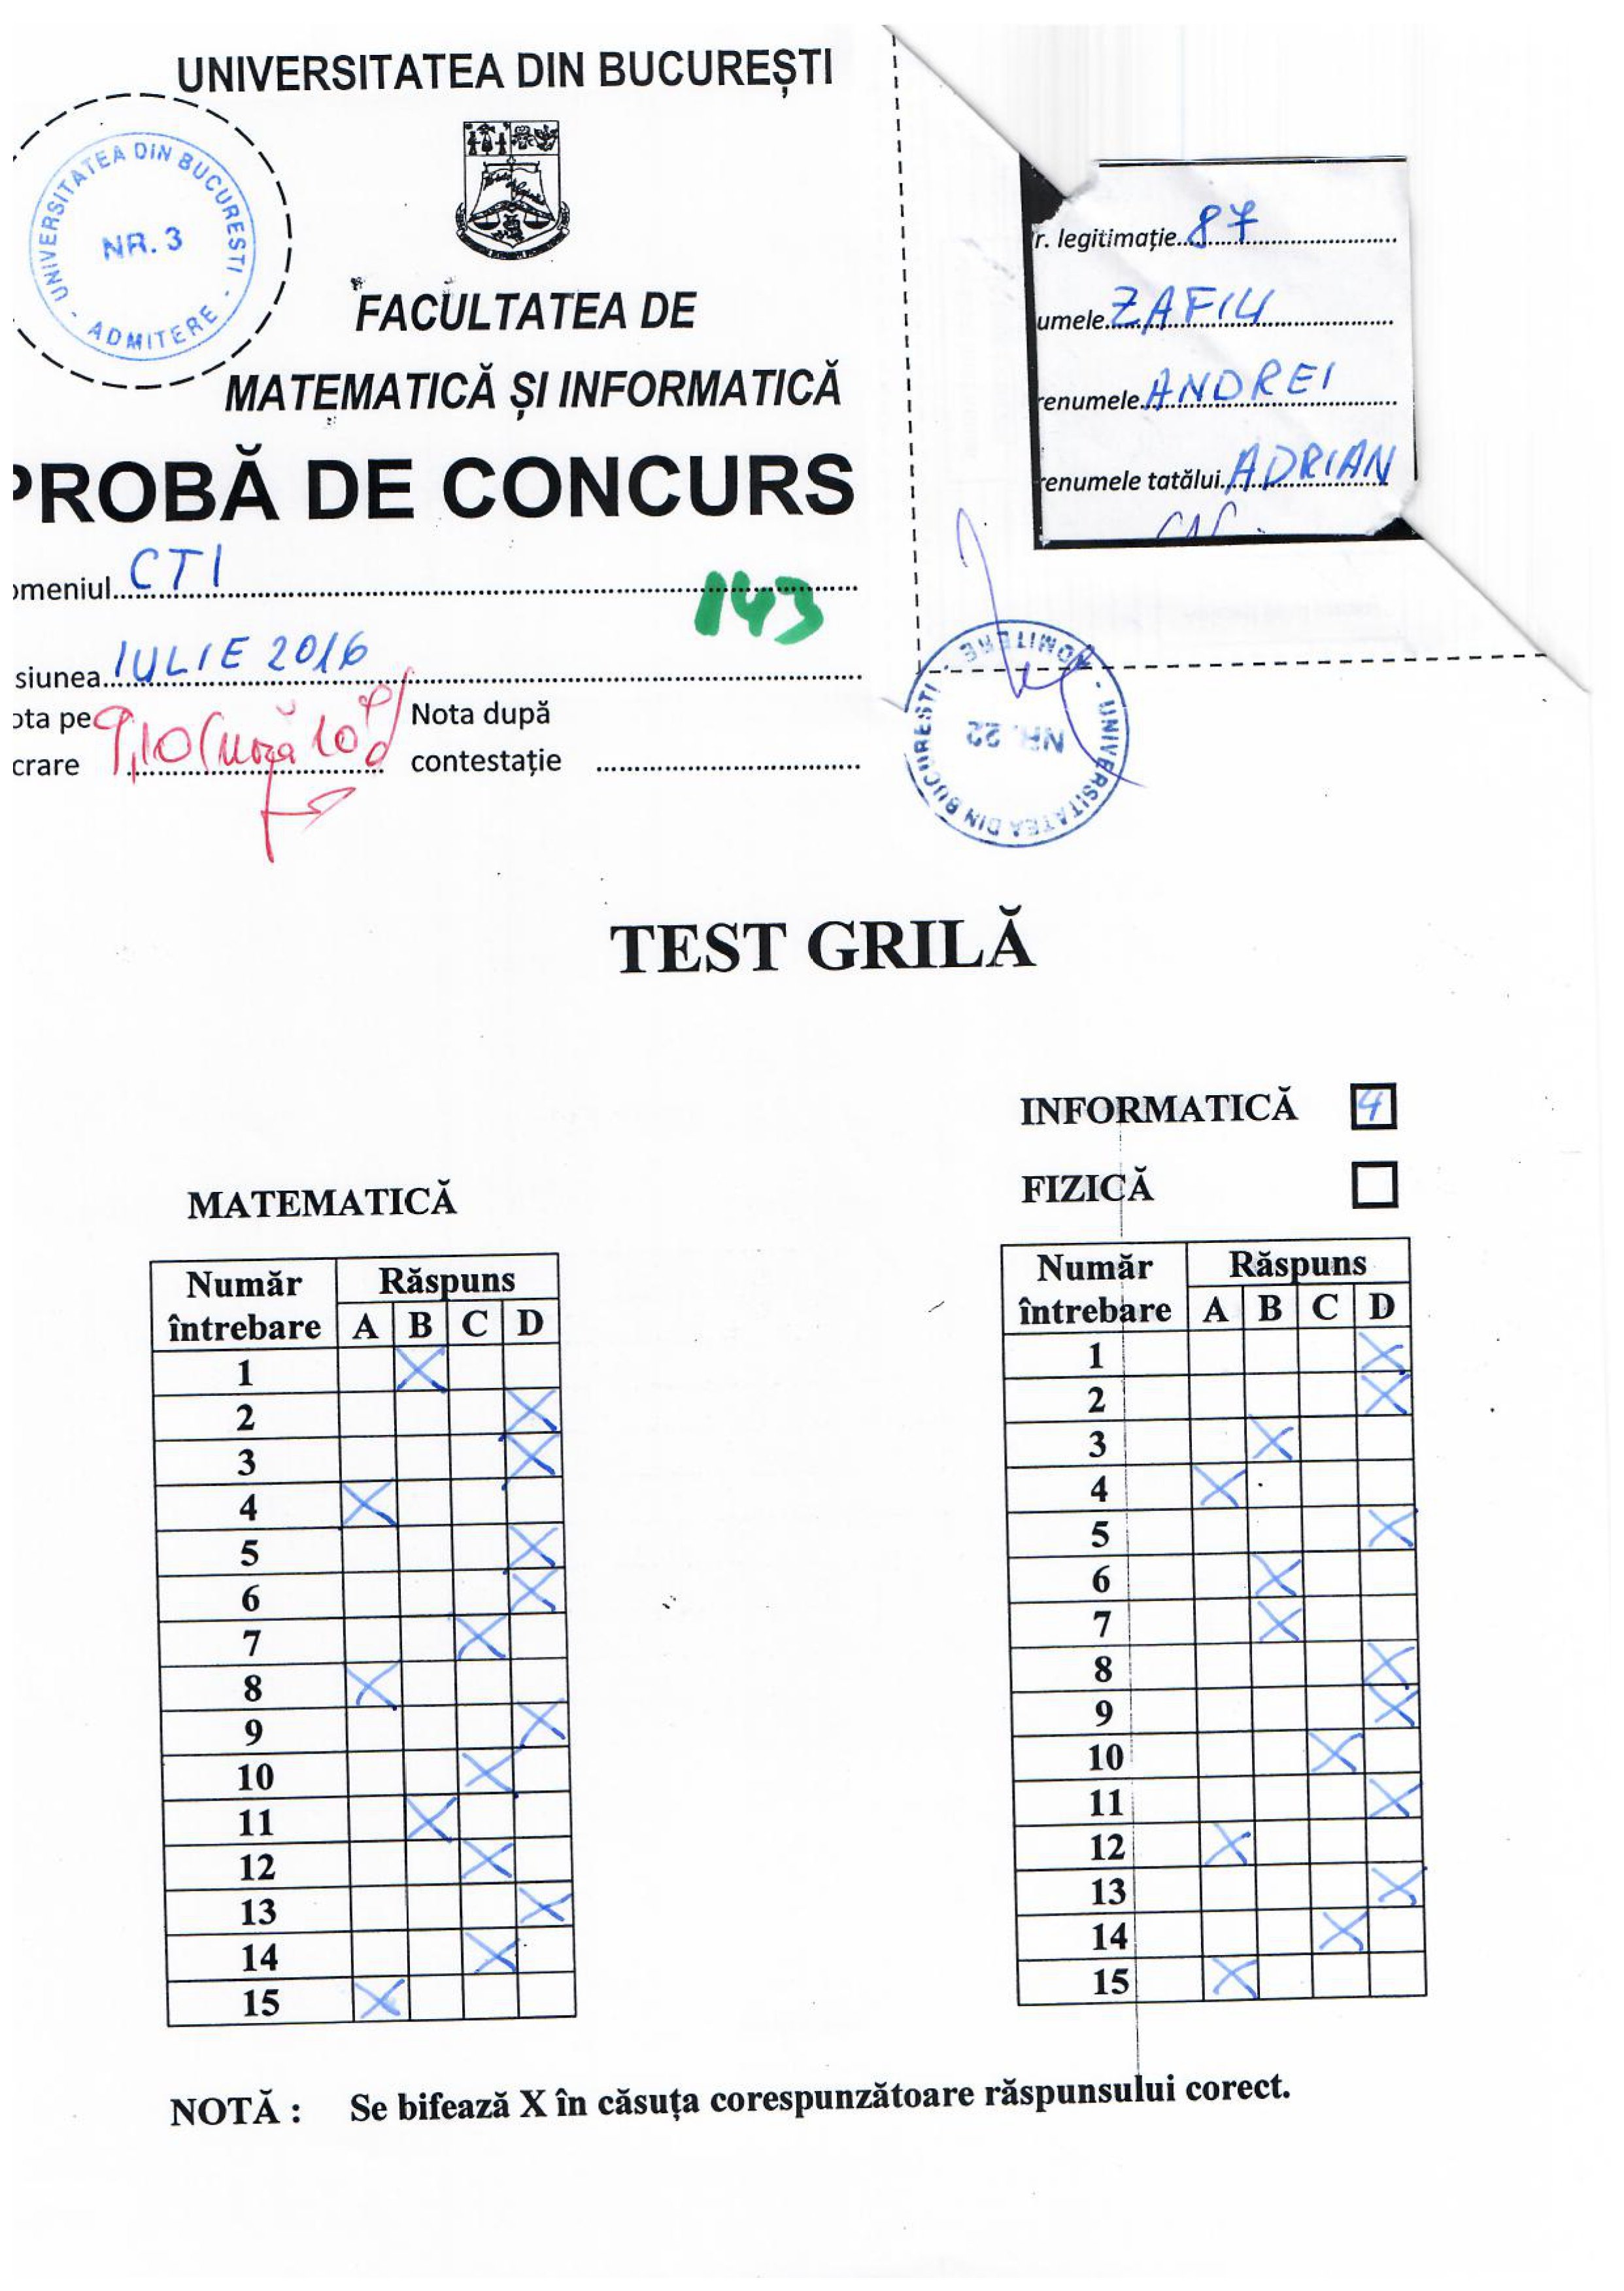 UNIVERSITATEA DIN BUCUREȘTI
UNIVERSITATEA DIN BUCURESTI - ADMITERE -
NR. 3
FACULTATEA DE
MATEMATICĂ ȘI INFORMATICĂ
PROBĂ DE CONCURS
omeniul CTI
143
siunea IULIE 2016
ota pe
crare 9,10 (nouă 10
Nota după
contestație
r. legitimație 87
umele ZAFIU
renumele ANDREI
renumele tatălui ADRIAN
UNIVERSITATEA DIN BUCURESTI - ADMITERE -
NR. 22
TEST GRILĂ
INFORMATICĂ 4
FIZICĂ
MATEMATICĂ
Număr întrebare Răspuns
A B C D
1 X
2 X
3 X
4 X
5 X
6 X
7 X
8 X
9 X
10 X
11 X
12 X
13 X
14 X
15 X
Număr întrebare Răspuns
A B C D
1 X
2 X
3 X
4 X
5 X
6 X
7 X
8 X
9 X
10 X
11 X
12 X
13 X
14 X
15 X
NOTĂ : Se bifează X în căsuța corespunzătoare răspunsului corect.